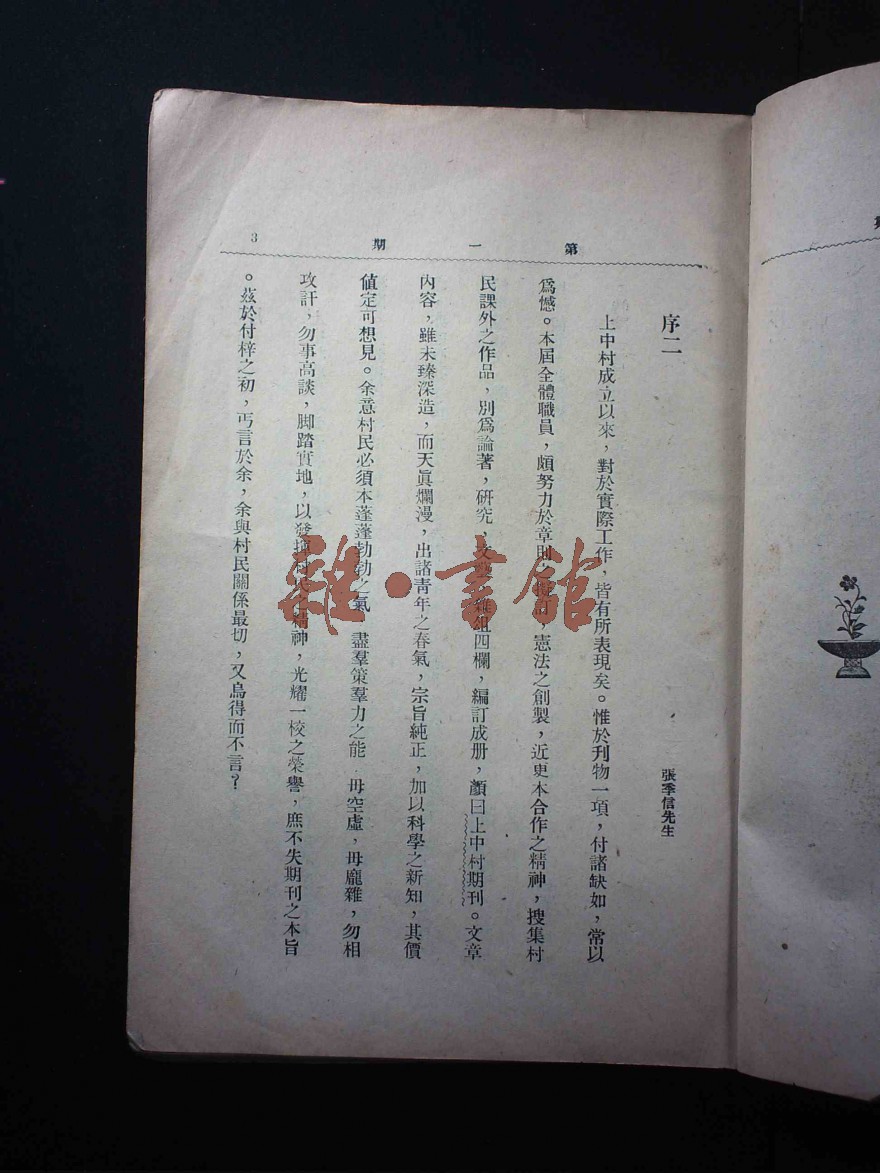 第一期
3
序二
張季信先生
上中村成立以來，對於實際工作，皆有所表現矣。惟於刊物一項，付諸缺如，常以
爲憾。本屆全體職員，頗努力於章則之 ，憲法之創製，近更本合作之精神，搜集村
民課外之作品，別爲論著，研究，文藝，雜俎四欄，編訂成册，顏曰上中村期刊。文章
內容，雖未臻深造，而天眞爛漫，出諸靑年之春氣，宗旨純正，加以科學之新知，其價
値定可想見。余意村民必須本蓬蓬勃勃之氣 盡羣策羣力之能 毋空虛，毋龐雜，勿相
攻訐，勿事高談，脚踏實地，以發 村民之精神，光耀一校之榮譽，庶不失期刊之本旨
。茲於付梓之初，丐言於余，余與村民關係最切，又烏得而不言？
雜·書館